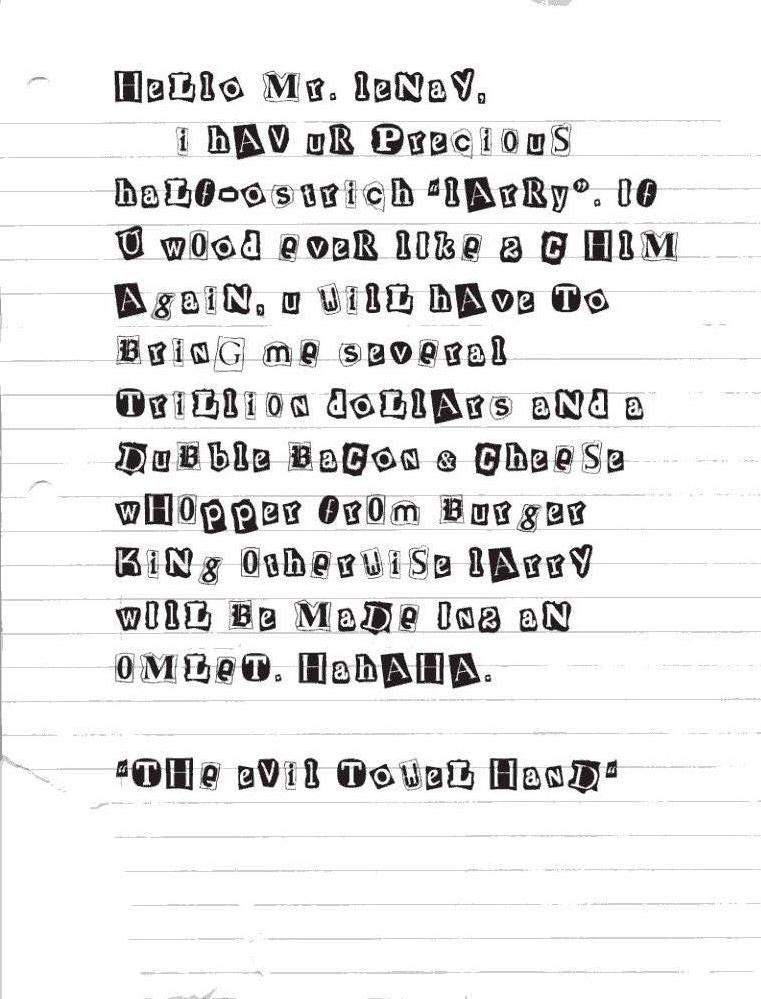 HeLLo Mr. leNaY,
i hAV uR PreciouS
haLf-ostrich "lArRy". If
U wOod eveR lIke 2 C HIM
AgaiN, u WilL hAve To
BrinG me several
TriLLiON doLLArs aNd a
DuBble BaCon & CheeSe
wHOpper frOm Burger
KiNg OtherWiSe lArrY
wIlL Be MaDe In2 aN
OMLeT. HahAHA.
"THe eVil ToWeL HanD"